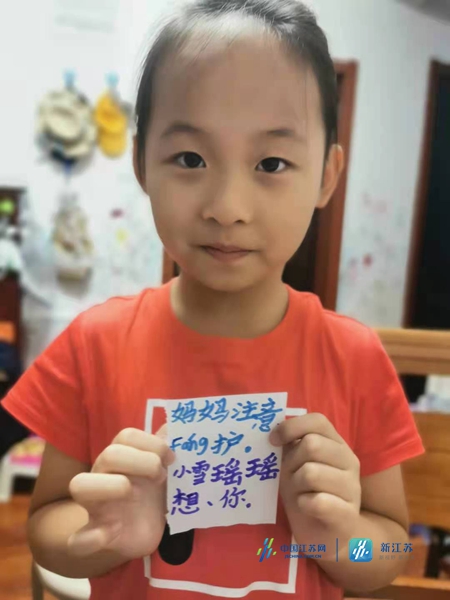 妈妈注意
Fáng护。
小雪瑶瑶
想、你.
中国江苏网
新江苏